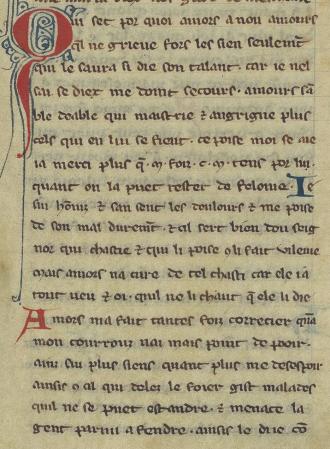 Qui set por quoi amors a non amours
q̃l ne grieue fors les sien seulemт̄
qui le saura si die son talant. car ie nel
sai se diex me doint secours. amours sā
ble deable qui maistrie ⁊ angrigne plus
cels qui en lui se fient. ce poise moi se aie
la merci plus q̃. m. foiz. c. m. tens por lui.
quant on la puet rester de felonie. Ie
sui hōmz ⁊ san sent les doulours ⁊ me poise
de son mal duremт̄. ⁊ cil sert bien dou seig
nor qui chastie ⁊ qui li poise o li fait vilenie
mais amors na cure de tel chasti car ele ia
tout veu ⁊ oi. quil ne li chaut q̃ ele li die
Amors ma fait tantes foiz correcier
mon courrouz nai mais point de pooir.
ainz sui plus siens quant plus me desespoir
ainsis o cil qui delez le foier gist malades
quil ne se puet estandre. ⁊ menace la
gent parmi a fendre. ainsis le die cō